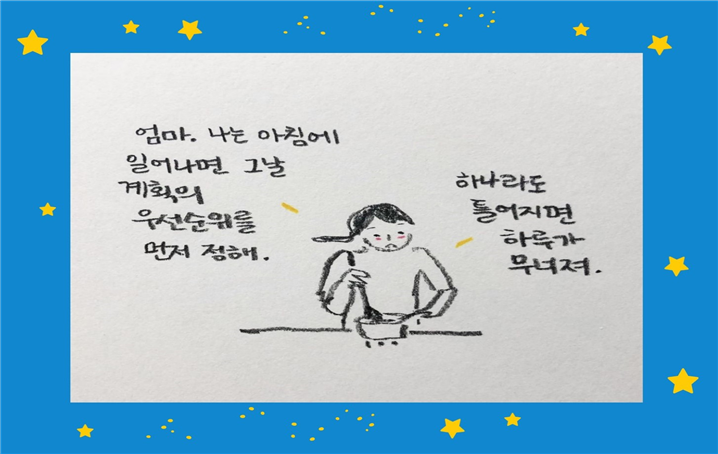 엄마. 나는 아침에
일어나면 그날
계획의
우선순위를
먼저 정해.
하나라도
틀어지면
하루가
무너져.